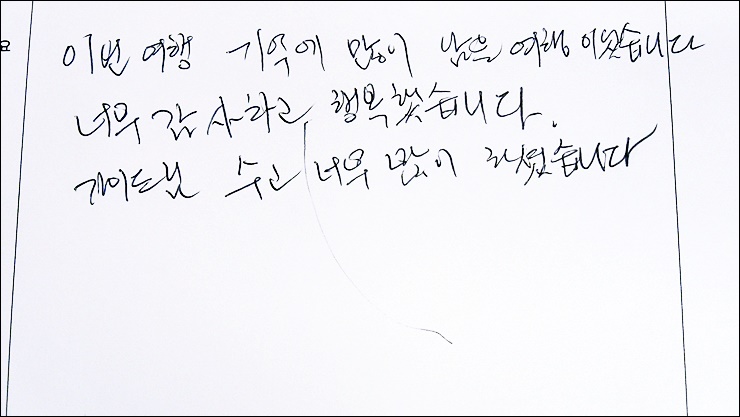 요
이번 여행 기억에 많이 남을 여행이었습니다
너무 감사하고, 행복했습니다.
가이드님 수고 너무 많이 하셨습니다